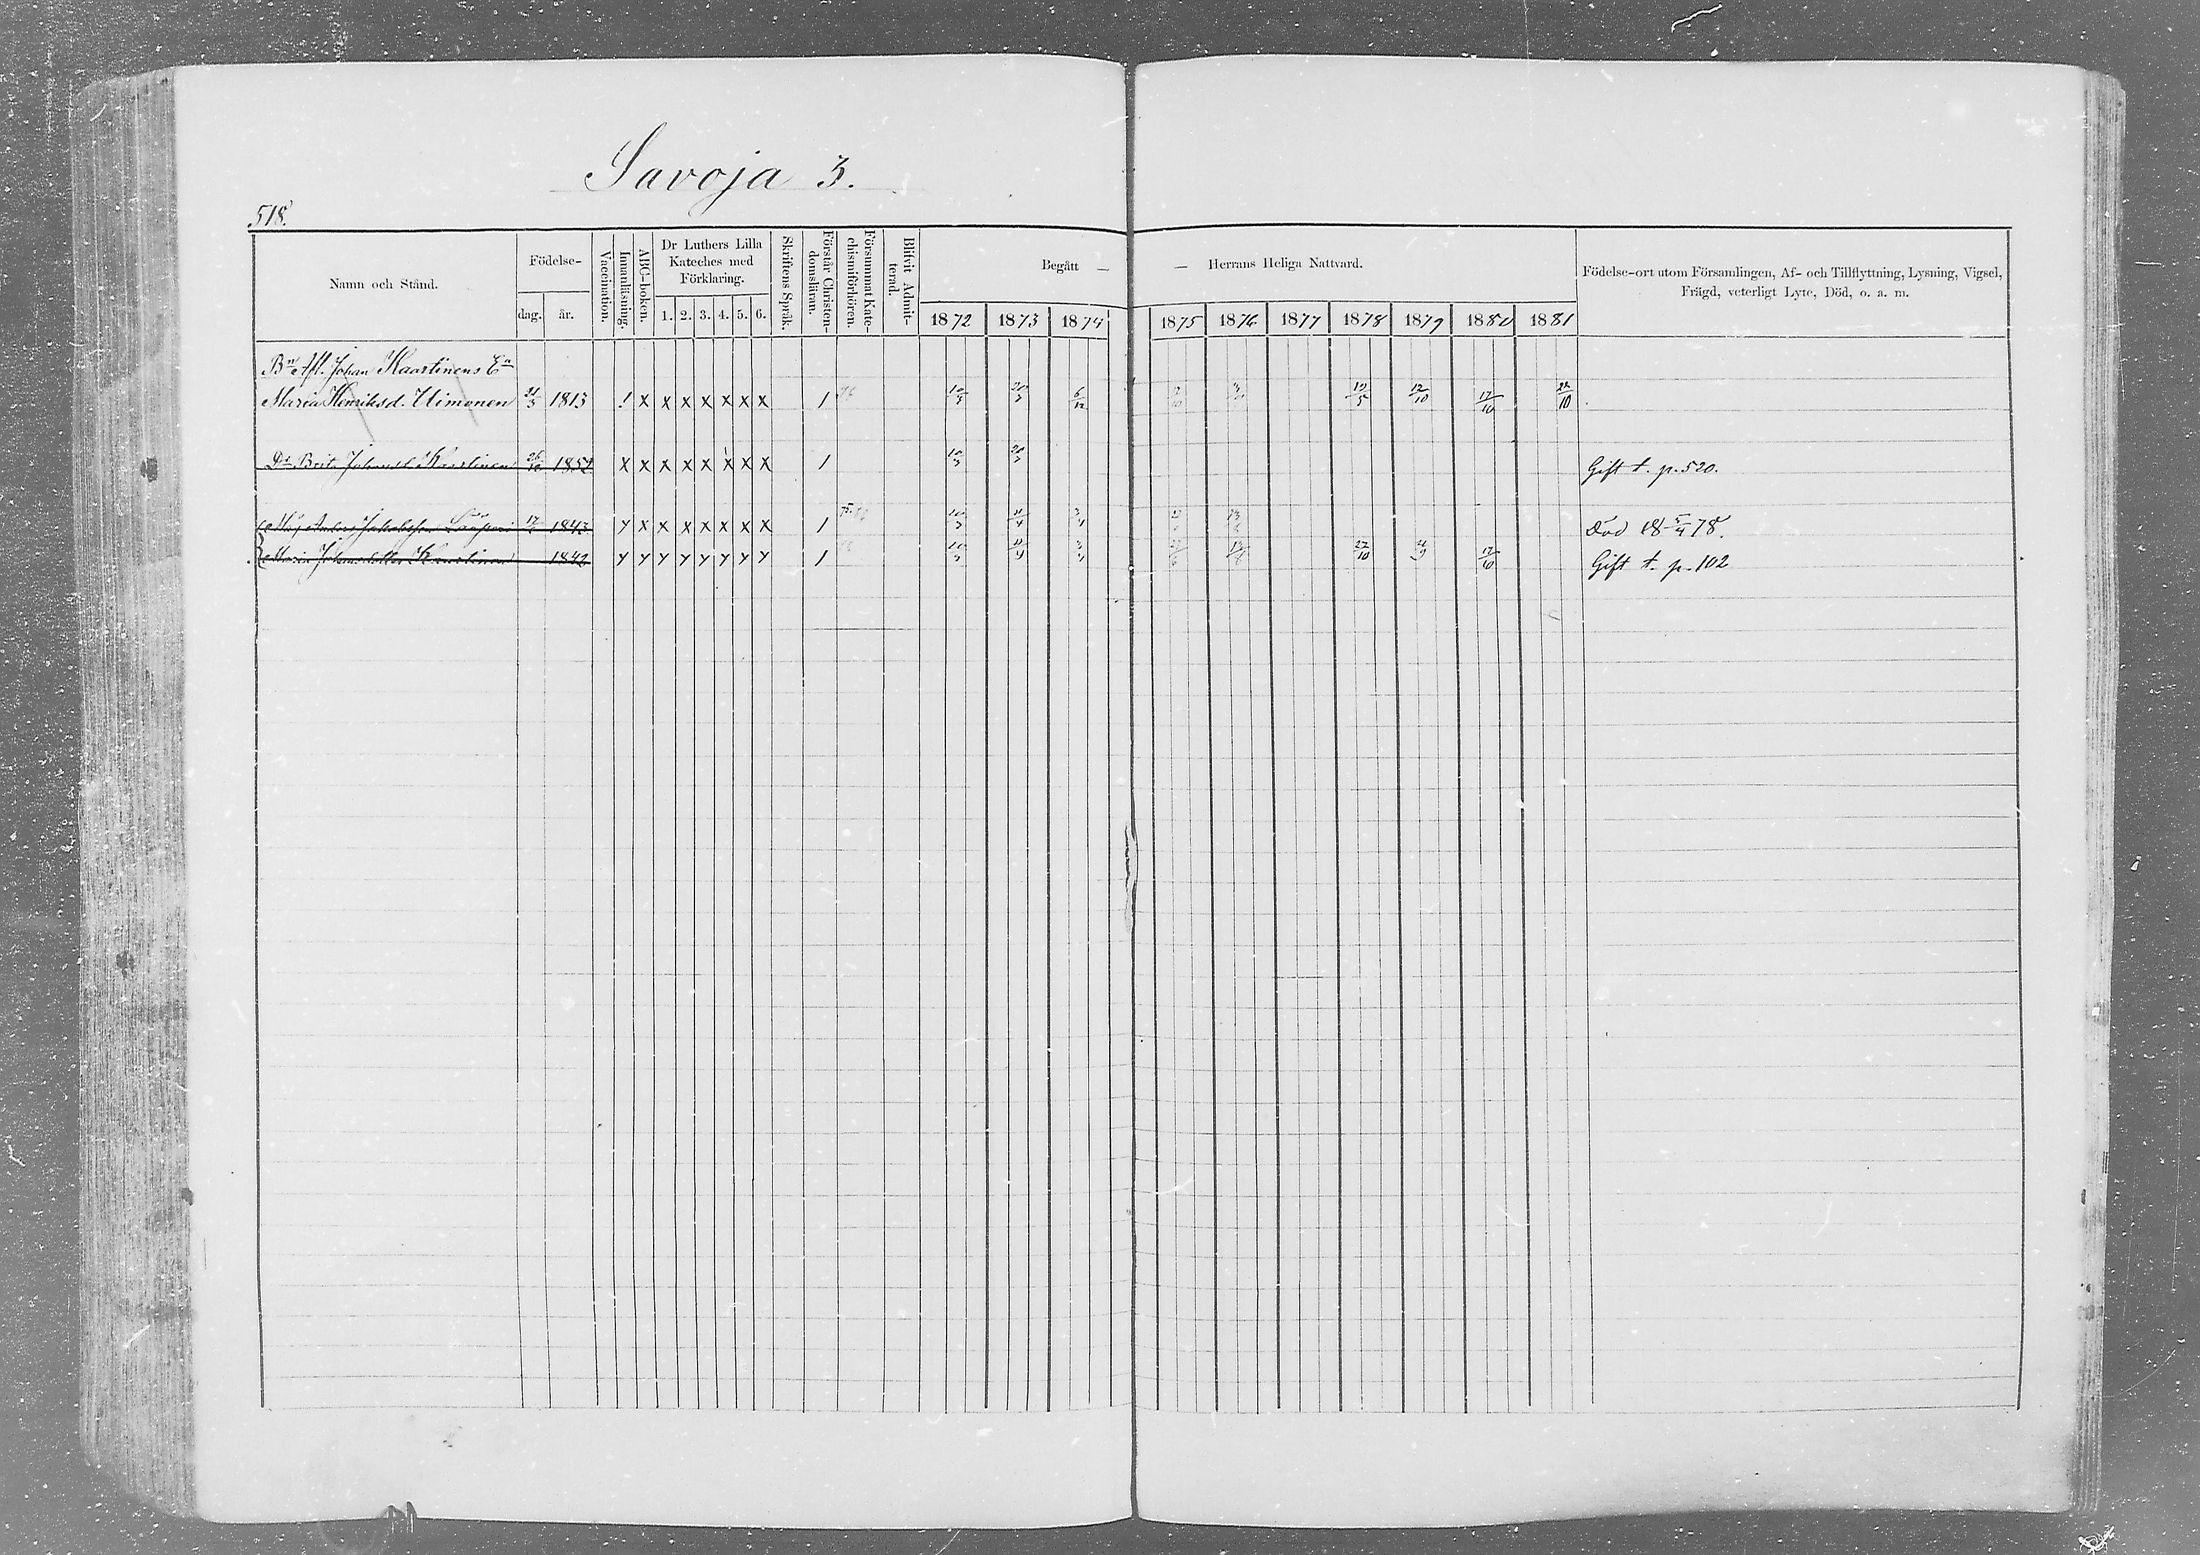 Savoja 3.
518.
Namn och Stånd.
Födelse-
dag. år.
Vaccination.
Innanläsning.
ABC-boken.
Dr Luthers Lilla
Kateches med
Förklaring.
1. 2. 3. 4. 5. 6.
Skriftens Språk.
Förstår Christen-
domsläran.
Försummat Kate-
chismiförhören.
Blifvit Admit-
terad.
Begått — — Herrans Heliga Nattvard.
1872 1873 1874 1875 1876 1877 1878 1879 1880 1881
Födelse-ort utom Församlingen, Af- och Tillflyttning, Lysning, Vigsel,
Frägd, veterligt Lyte, Död, o. a. m.
Bn Afl. Johan Kaartinens En
Maria Henriksd. Uimonen 21/3 1813 ! x x x x x x x 1 10/3 20/3 6/12 19/5 12/10 17/10 22/10
Dr Brita Johansd. Kaartinen 26/10 1852 x x x x x x x x 1 10/3 20/3 Gift t. p. 520.
Måg Anders 1843 y x x x x x x x 1 10/3 11/4 3/4 Död 18 5/4 78.
Maria Kaartinen 1842 y y y y y y y y 1 10/3 11/4 3/4 27/10 21/9 17/10 Gift t. p. 102